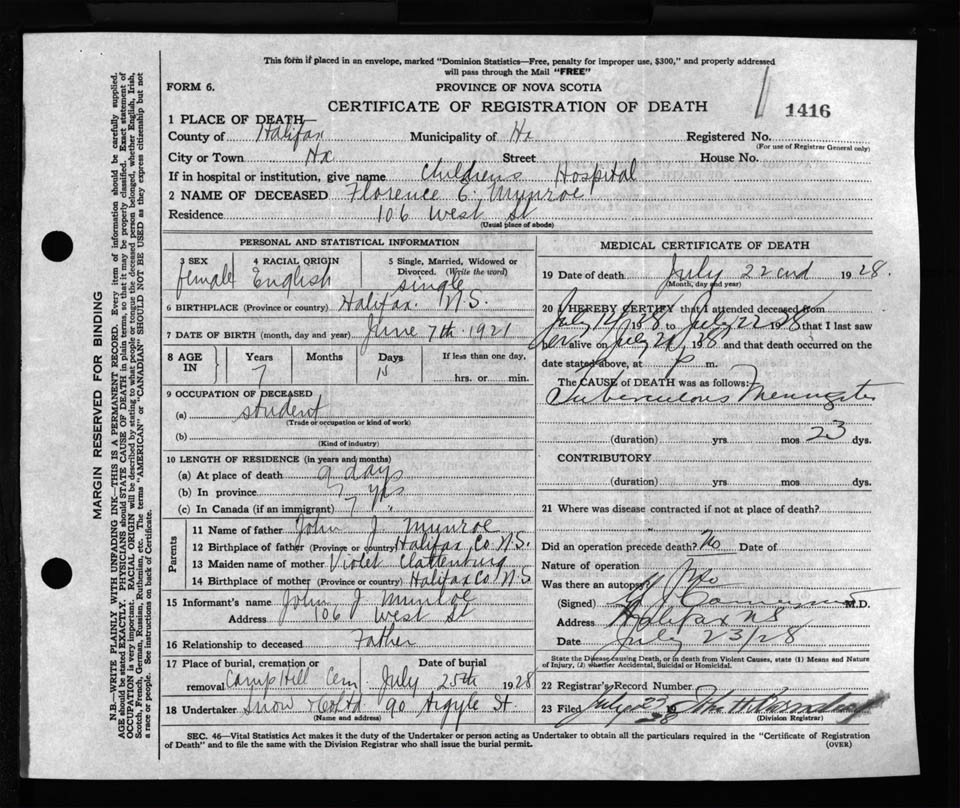 This form if placed in an envelope, marked "Dominion Statistics—Free, penalty for improper use, $300," and properly addressed
will pass through the Mail "FREE"
FORM 6.
PROVINCE OF NOVA SCOTIA
CERTIFICATE OF REGISTRATION OF DEATH
1416
1 PLACE OF DEATH
County of Halifax Municipality of Hx Registered No.
(For use of Registrar General only)
City or Town Hx Street House No.
If in hospital or institution, give name Childrens Hospital
2 NAME OF DECEASED Florence E. Munroe
Residence 106 West St
(Usual place of abode)
PERSONAL AND STATISTICAL INFORMATION
3 SEX 4 RACIAL ORIGIN 5 Single, Married, Widowed or
Divorced. (Write the word)
female English single
6 BIRTHPLACE (Province or country) Halifax N.S.
7 DATE OF BIRTH (month, day and year) June 7th 1921
8 AGE IN Years Months Days If less than one day,
7 15 hrs. or min.
9 OCCUPATION OF DECEASED
(a) student
(Trade or occupation or kind of work)
(b)
(Kind of industry)
10 LENGTH OF RESIDENCE (in years and months)
(a) At place of death 9 days
(b) In province 7 yrs
(c) In Canada (if an immigrant) 7 "
Parents
11 Name of father John J. Munroe
12 Birthplace of father (Province or country) Halifax Co. N.S.
13 Maiden name of mother Violet Clattenburg
14 Birthplace of mother (Province or country) Halifax Co. N.S.
15 Informant's name John J Munroe
Address 106 West St
16 Relationship to deceased Father
17 Place of burial, cremation or Date of burial
removal Camp Hill Cem. July 25th 1928
18 Undertaker Snow & Co Ltd 90 Argyle St.
(Name and address)
MEDICAL CERTIFICATE OF DEATH
19 Date of death July 22nd 1928.
(Month, day and year)
20 I HEREBY CERTIFY that I attended deceased from
July 1928 to July 22 1928 that I last saw
her alive on July 1928 and that death occurred on the
date stated above, at P m.
The CAUSE of DEATH was as follows:
Tuberculous Meningitis
(duration) yrs mos 23 dys.
CONTRIBUTORY
(duration) yrs. mos. dys.
21 Where was disease contracted if not at place of death?
Did an operation precede death? No Date of
Nature of operation
Was there an autopsy? No
(Signed) M.D.
Address Halifax NS
Date July 23/28
State the Disease causing Death, or in death from Violent Causes, state (1) Means and Nature
of Injury, (2) whether Accidental, Suicidal or Homicidal.
22 Registrar's Record Number
23 Filed July 28 19
(Division Registrar)
SEC. 46—Vital Statistics Act makes it the duty of the Undertaker or person acting as Undertaker to obtain all the particulars required in the "Certificate of Registration
of Death" and to file the same with the Division Registrar who shall issue the burial permit.
(OVER)
MARGIN RESERVED FOR BINDING
N.B—WRITE PLAINLY WITH UNFADING INK—THIS IS A PERMANENT RECORD. Every item of information should be carefully supplied.
AGE should be stated EXACTLY. PHYSICIANS should STATE CAUSE OF DEATH in plain terms, so that it may be properly classified. Exact statement of
OCCUPATION is very important. RACIAL ORIGIN will be described by stating to what people or tongue the deceased person belonged, whether English, Irish,
Scotch, French, German, Russian, Ruthenian, etc. The terms "AMERICAN" or "CANADIAN" SHOULD NOT BE USED as they express citizenship but not
a race or people. See instructions on back of Certificate.